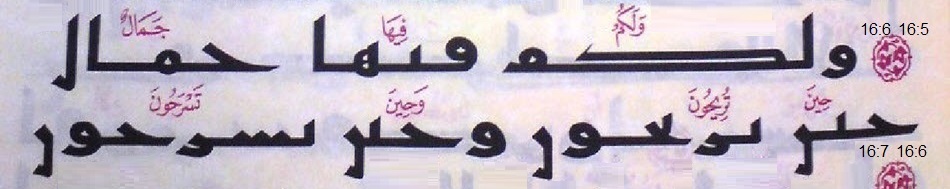 16:6 16:5
وَلَكُمْ فِيهَا جَمَالٌ
ولكم فيها جمال
حِينَ تُرِيحُونَ وَحِينَ تَسْرَحُونَ
حين تريحون وحين تسرحون
16:7 16:6